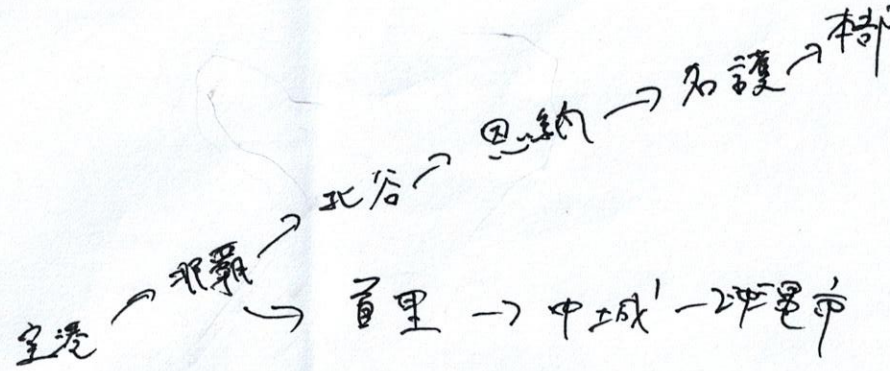 空港 → 那覇 → 北谷 → 恩納 → 名護 → 本部
→ 首里 → 中城 → 沖縄市